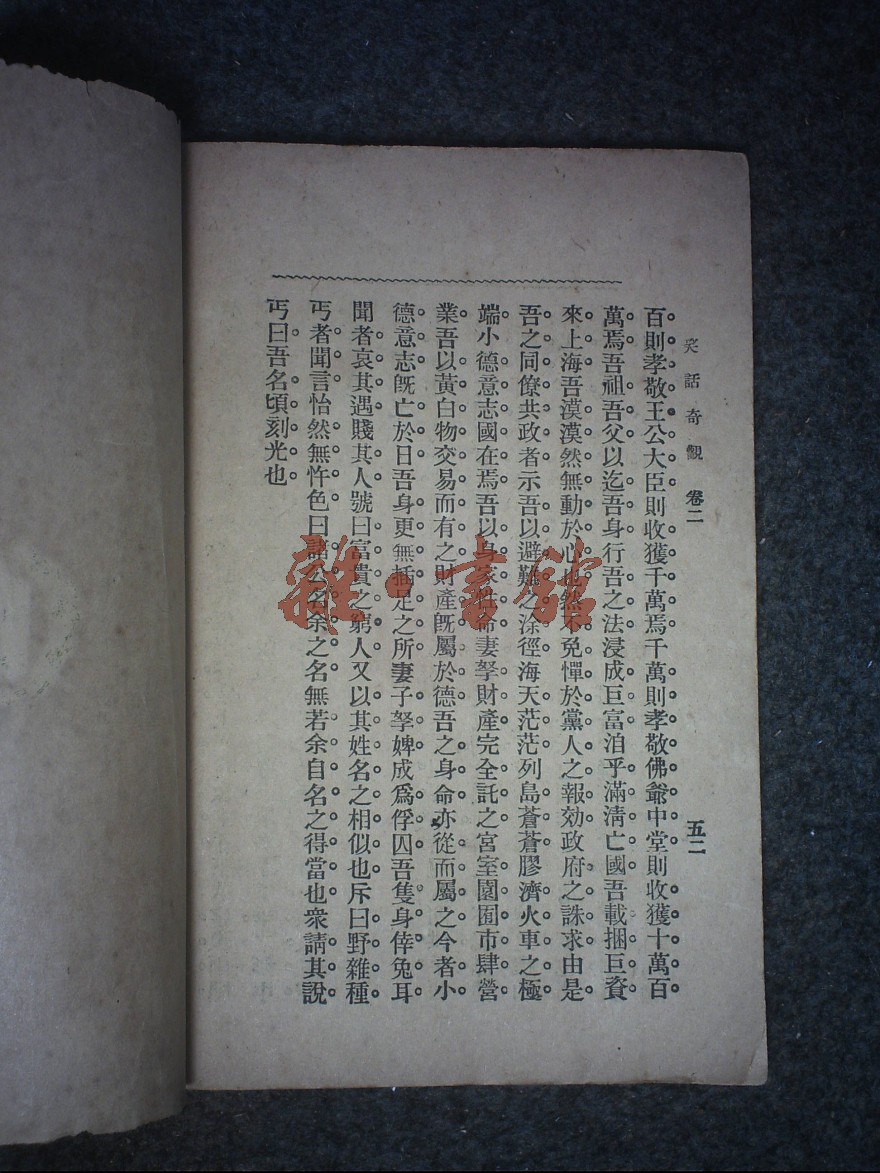 笑話奇觀 卷二 五二
百則孝敬王公大臣則收獲千萬焉千萬則孝敬佛爺中堂則收獲十萬百
萬焉吾祖吾父以迄吾身行吾之法浸成巨富洎乎滿淸亡國吾載捆巨資
來上海吾漠漠然無動於心也然不免憚於黨人之報効政府之誅求由是
吾之同僚共政者示吾以避難之涂徑海天茫茫列島蒼蒼膠濟火車之極
端小德意志國在焉吾以身家性命妻孥財產完全託之宮室園囿市肆營
業吾以黃白物交易而有之財產旣屬於德吾之身命亦從而屬之今者小
德意志旣亡於日吾身更無插足之所妻子孥婢成爲俘囚吾隻身倖免耳
聞者哀其遇賤其人號曰富貴之窮人又以其姓名之相似也斥曰野雜種
丐者聞言怡然無忤色曰諸公名余之名無若余自名之得當也衆請其說
丐曰吾名頃刻光也
雜書館